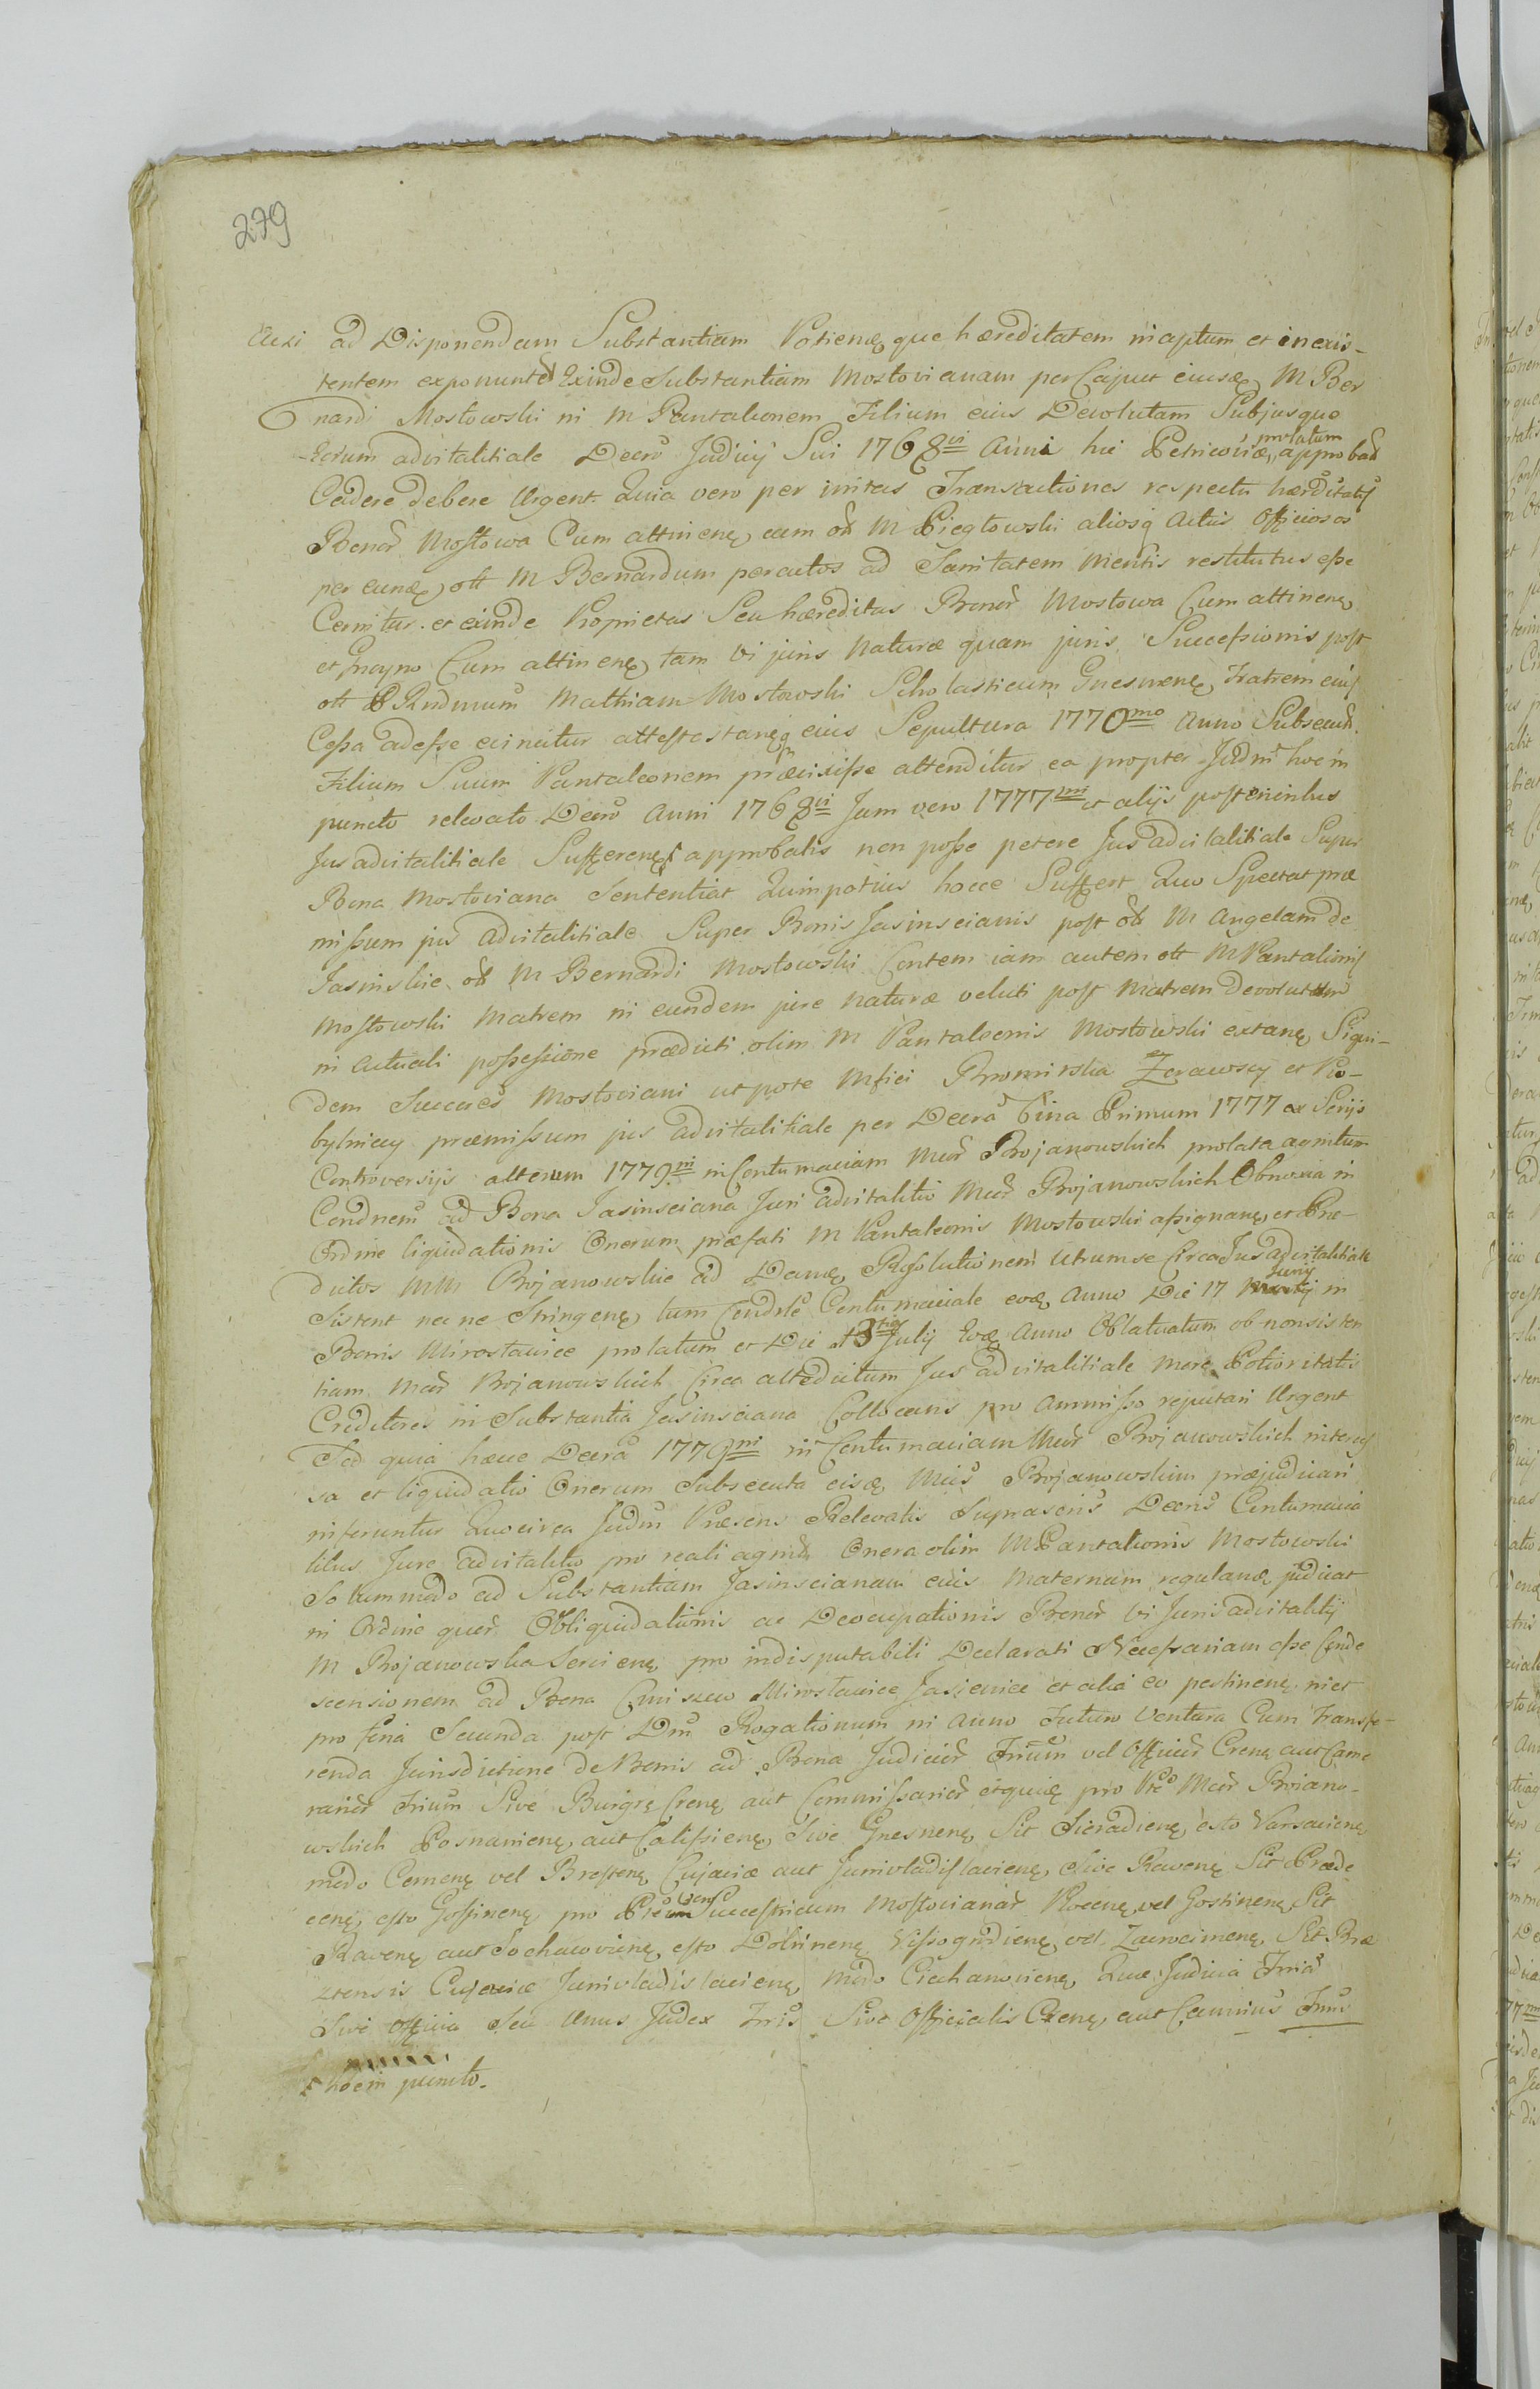 279
ad Disponendam Substantiam Potienę que hæreditatem inaptum et inexis-
tentem exponunte Exinde Substantiam Mostovianam per Caput eiusdę M Ber
nardi Mostowski in M Pantaleonem Filium eius Devolutam Subjusque
-Eorum advitalitiale Decro Judicij Sui 1768vi Anni hic Petricoviæ, prolatum approbaō
Cedere debere Urgent Quia vero per initas Transactiones respectu hærditatis
Bonor Mostowa Cum attinenę eum oł M Piegłowski aliosq Actus Officiosos
per eundę olt M Bernardum peractos ad Sanitatem Mentis restitutus eſse
Cernitur. et exinde Proprietas Seu hæreditas Bonor Mostowa Cum attinenę
et Cum attinenę tam vi juris Naturæ quam juris Succeſsionis poſt
olt Rndmum Mathiam Mostowski Scholasticum Gnesnenę Fratrem eius
Ceſsa adeſse evincitur eius Sepultura 1770mo Anno Subsecuta
Filium Suum Pantaleonem præviixiſse attenditur ea propter Judm hoc in
puncto relevato Decro Anni 1768vi Jam vero 1777mi et alijs posterioribus
Jus advitalitiale Sufferenę approbatis non poſse petere Jus advitalitiale Super
Bona Mostoviana Sententiat Quinpotius hocce Suffert Quo Spectat præ
miſsum jus advitalitiale Super Bonis Jasinscianis poſt oł M Angelam de
Jasinskie oł M Bernardi Mostowski Contem iam autem olt M Pantaleonis
Mostowski Matrem in eundem jure Naturæ veluti poſt Matrem Devolutum
in Actuali poſseſsione prædicti olim M Pantaleonis Mostowski extanę Siqui-
dem Succes Mostoviani utpote Mfici Bromirska Zerawscy et Ko-
bylniccy præmiſsum jus advitalitiale per Decra bina Primum 1777 ex Serijs
Controversijs alterum 1779ni in Contumaciam Mcor Bojanowskich prolata agnitum
Condnem ad Bona Jasinsciana Juri advitalitio Mcor Bojanowskich Obnoxia in
Ordine liquidationis Onerum præfati M Pantaleonis Mostowski aſsignanę, et Præ-
dictos MM Bojanowskie ad Danę Resolutionem Utrum se Circa Jus advitalitiale
Sistent nec ne Stringenę tum Condēle Contumaciale eodę Anno Die 17 Junij in
Bonis Mirosławice prolatum et Die 3tia July Eodę Anno Oblatuatum ob nonsisten
tiam Mcor Bojanowskich Circa altedictum Jus advitalitiale More Potioritatis
Creditores in Substantia Jasinsciana Collocans pro Ammiſso reputari Urgent
Sed quia hæcce Decra 1779ni in Contumaciam Mcor Bojanowskich interces
sa et liquidatio Onerum Subsecuta eisdę Mcis Bojanowskim præjudicari
inferuntur Quocirca Judm Præsens Relevatis Suprascris Decris Contumacia
libus Jure advitalitio pro reali agnito Onera olim M Pantaleonis Mostowski
Solummodo ad Substantiam Jasinscianam eius Maternam regulandę judicat
in Ordine quor Obliquidationis ac Deocupationis Bonor vi Juris advitalitij
M Bojanowska Servienę pro indisputabili Declarati Neceſsariam eſse Conde
scensionem ad Bona Mirosławice Jasienice et alia eo pertinenę in et
pro feria Secunda poſt Dm Rogationum in Anno Futuro Ventura Cum Transfe-
renda Jurisdictione de Bonis ad Bona Judicior Trium vel Officior Crenę aut Came
rarior Trium Sive Burgre Crenę aut Commiſsarior etquidę pro Pte Mcor Bojano-
wskich Posnanienę, aut Caliſsienę, Sive Gnesnenę Sit Sieradienę, esto Varsavienę
modo Cemenę vel Breſtenę Cujaviæ aut Junivladislavienę, Sive Ravenę Sit Præde
cenę, esto Goſtinenę pro Succeſsricum Mostovianar Plocenę vel Gostinenę Sit
Ravenę aut Sochacovienę, esto Dobrinenę Viſsogrodienę vel Zawcrinenę Sit Bræ
stensis Cujaviæ Junivladislavienę, modo Ciechanovienę, Quæ Judicia Tria
Sive Officia Seu Unus Judex Tris Sive Officialis Crenę, aut Camrius Trius
hocin puncto.